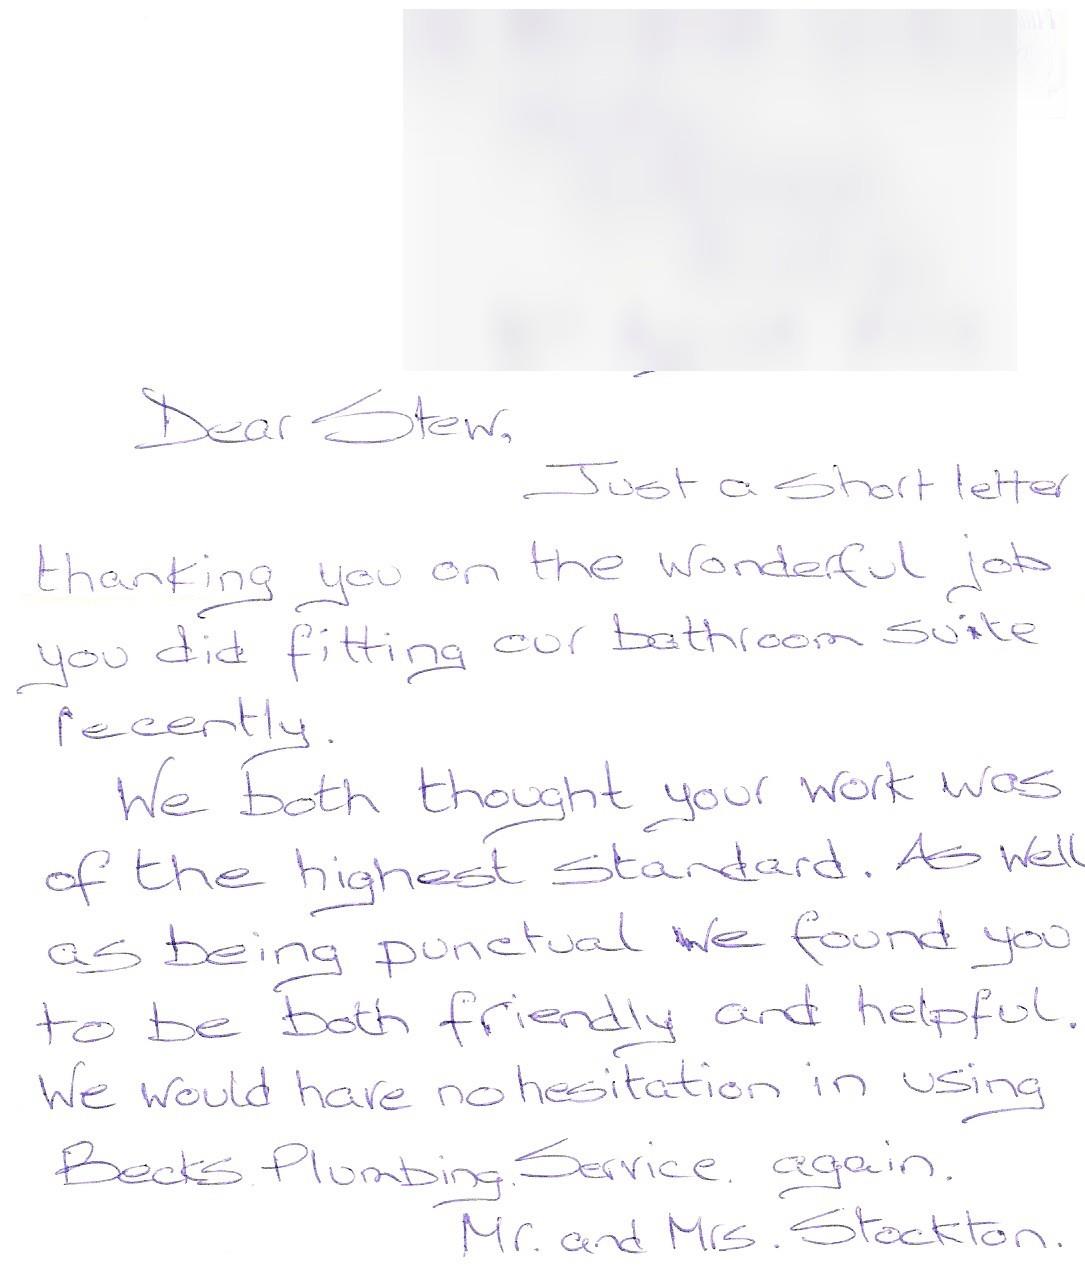 Dear Stew,
Just a short letter
thanking you on the wonderful job
you did fitting our bathroom suite
recently.
We both thought your work was
of the highest standard. As well
as being punctual we found you
to be both friendly and helpful.
We would have no hesitation in using
Becks Plumbing Service again.
Mr. and Mrs. Stockton.